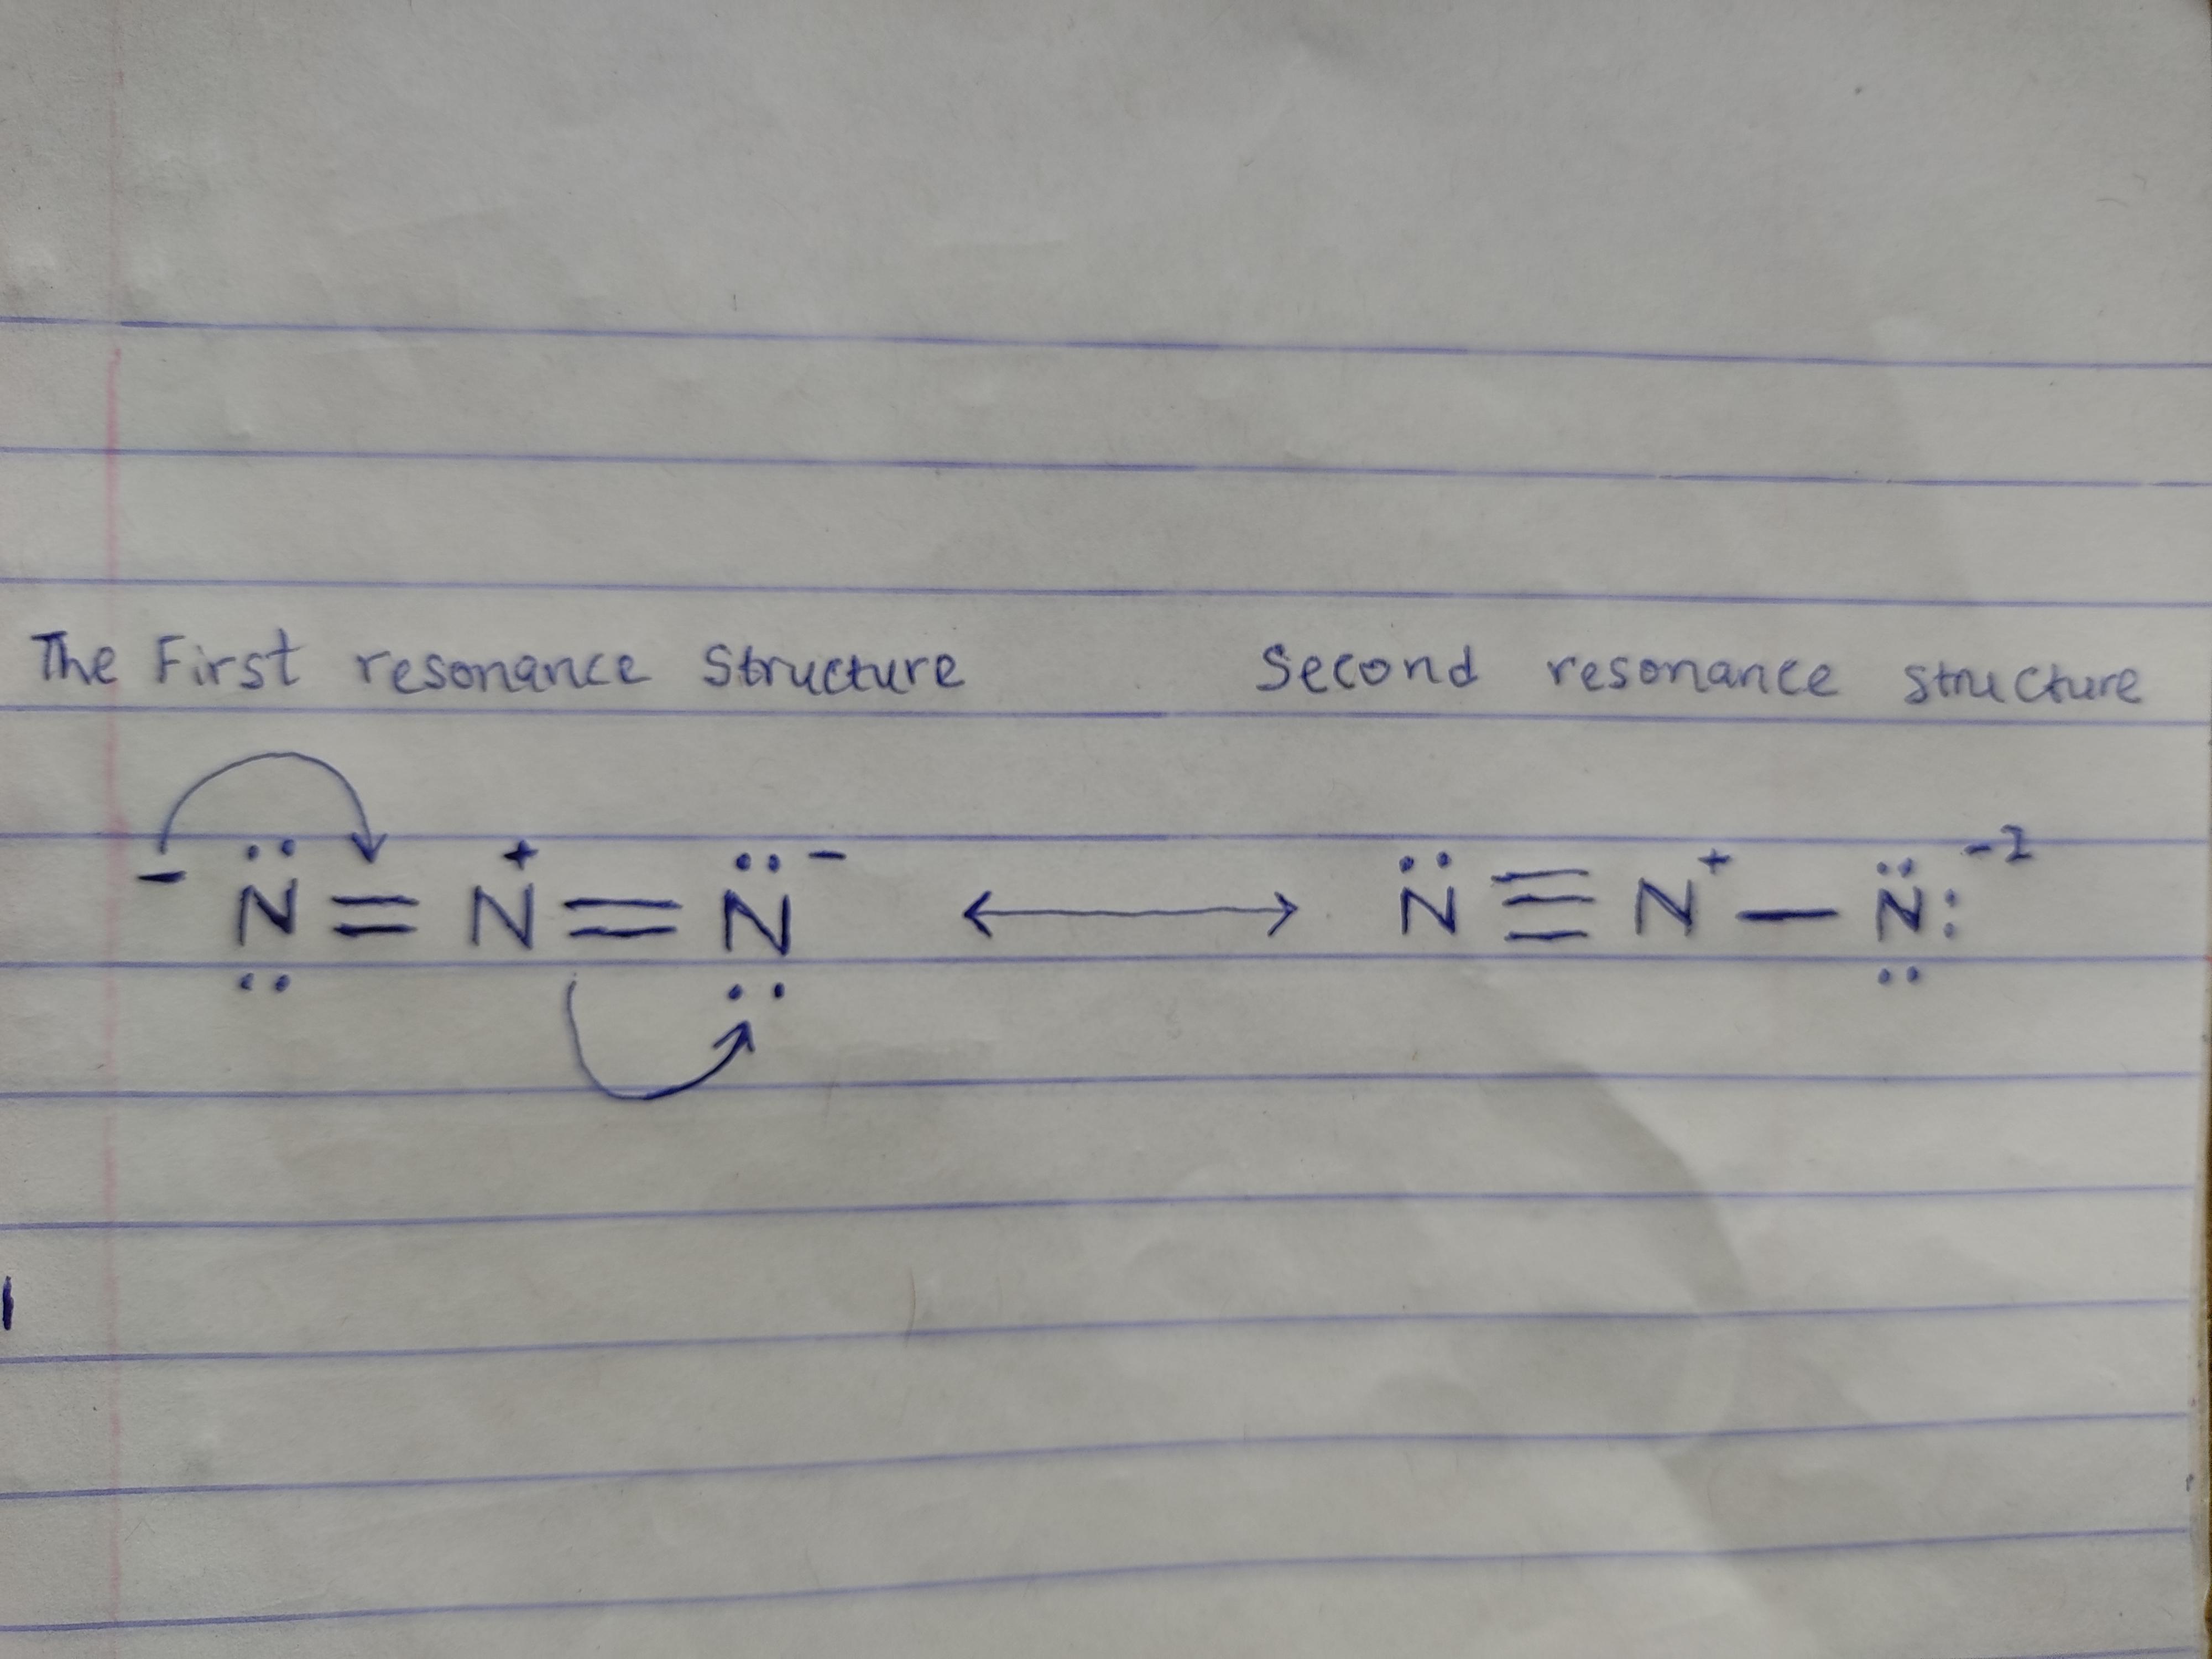 The First resonance Structure Second resonance structure
- N̈ = N⁺ = N̈ - ⟷ N̈ ≡ N⁺ — N̈: -2